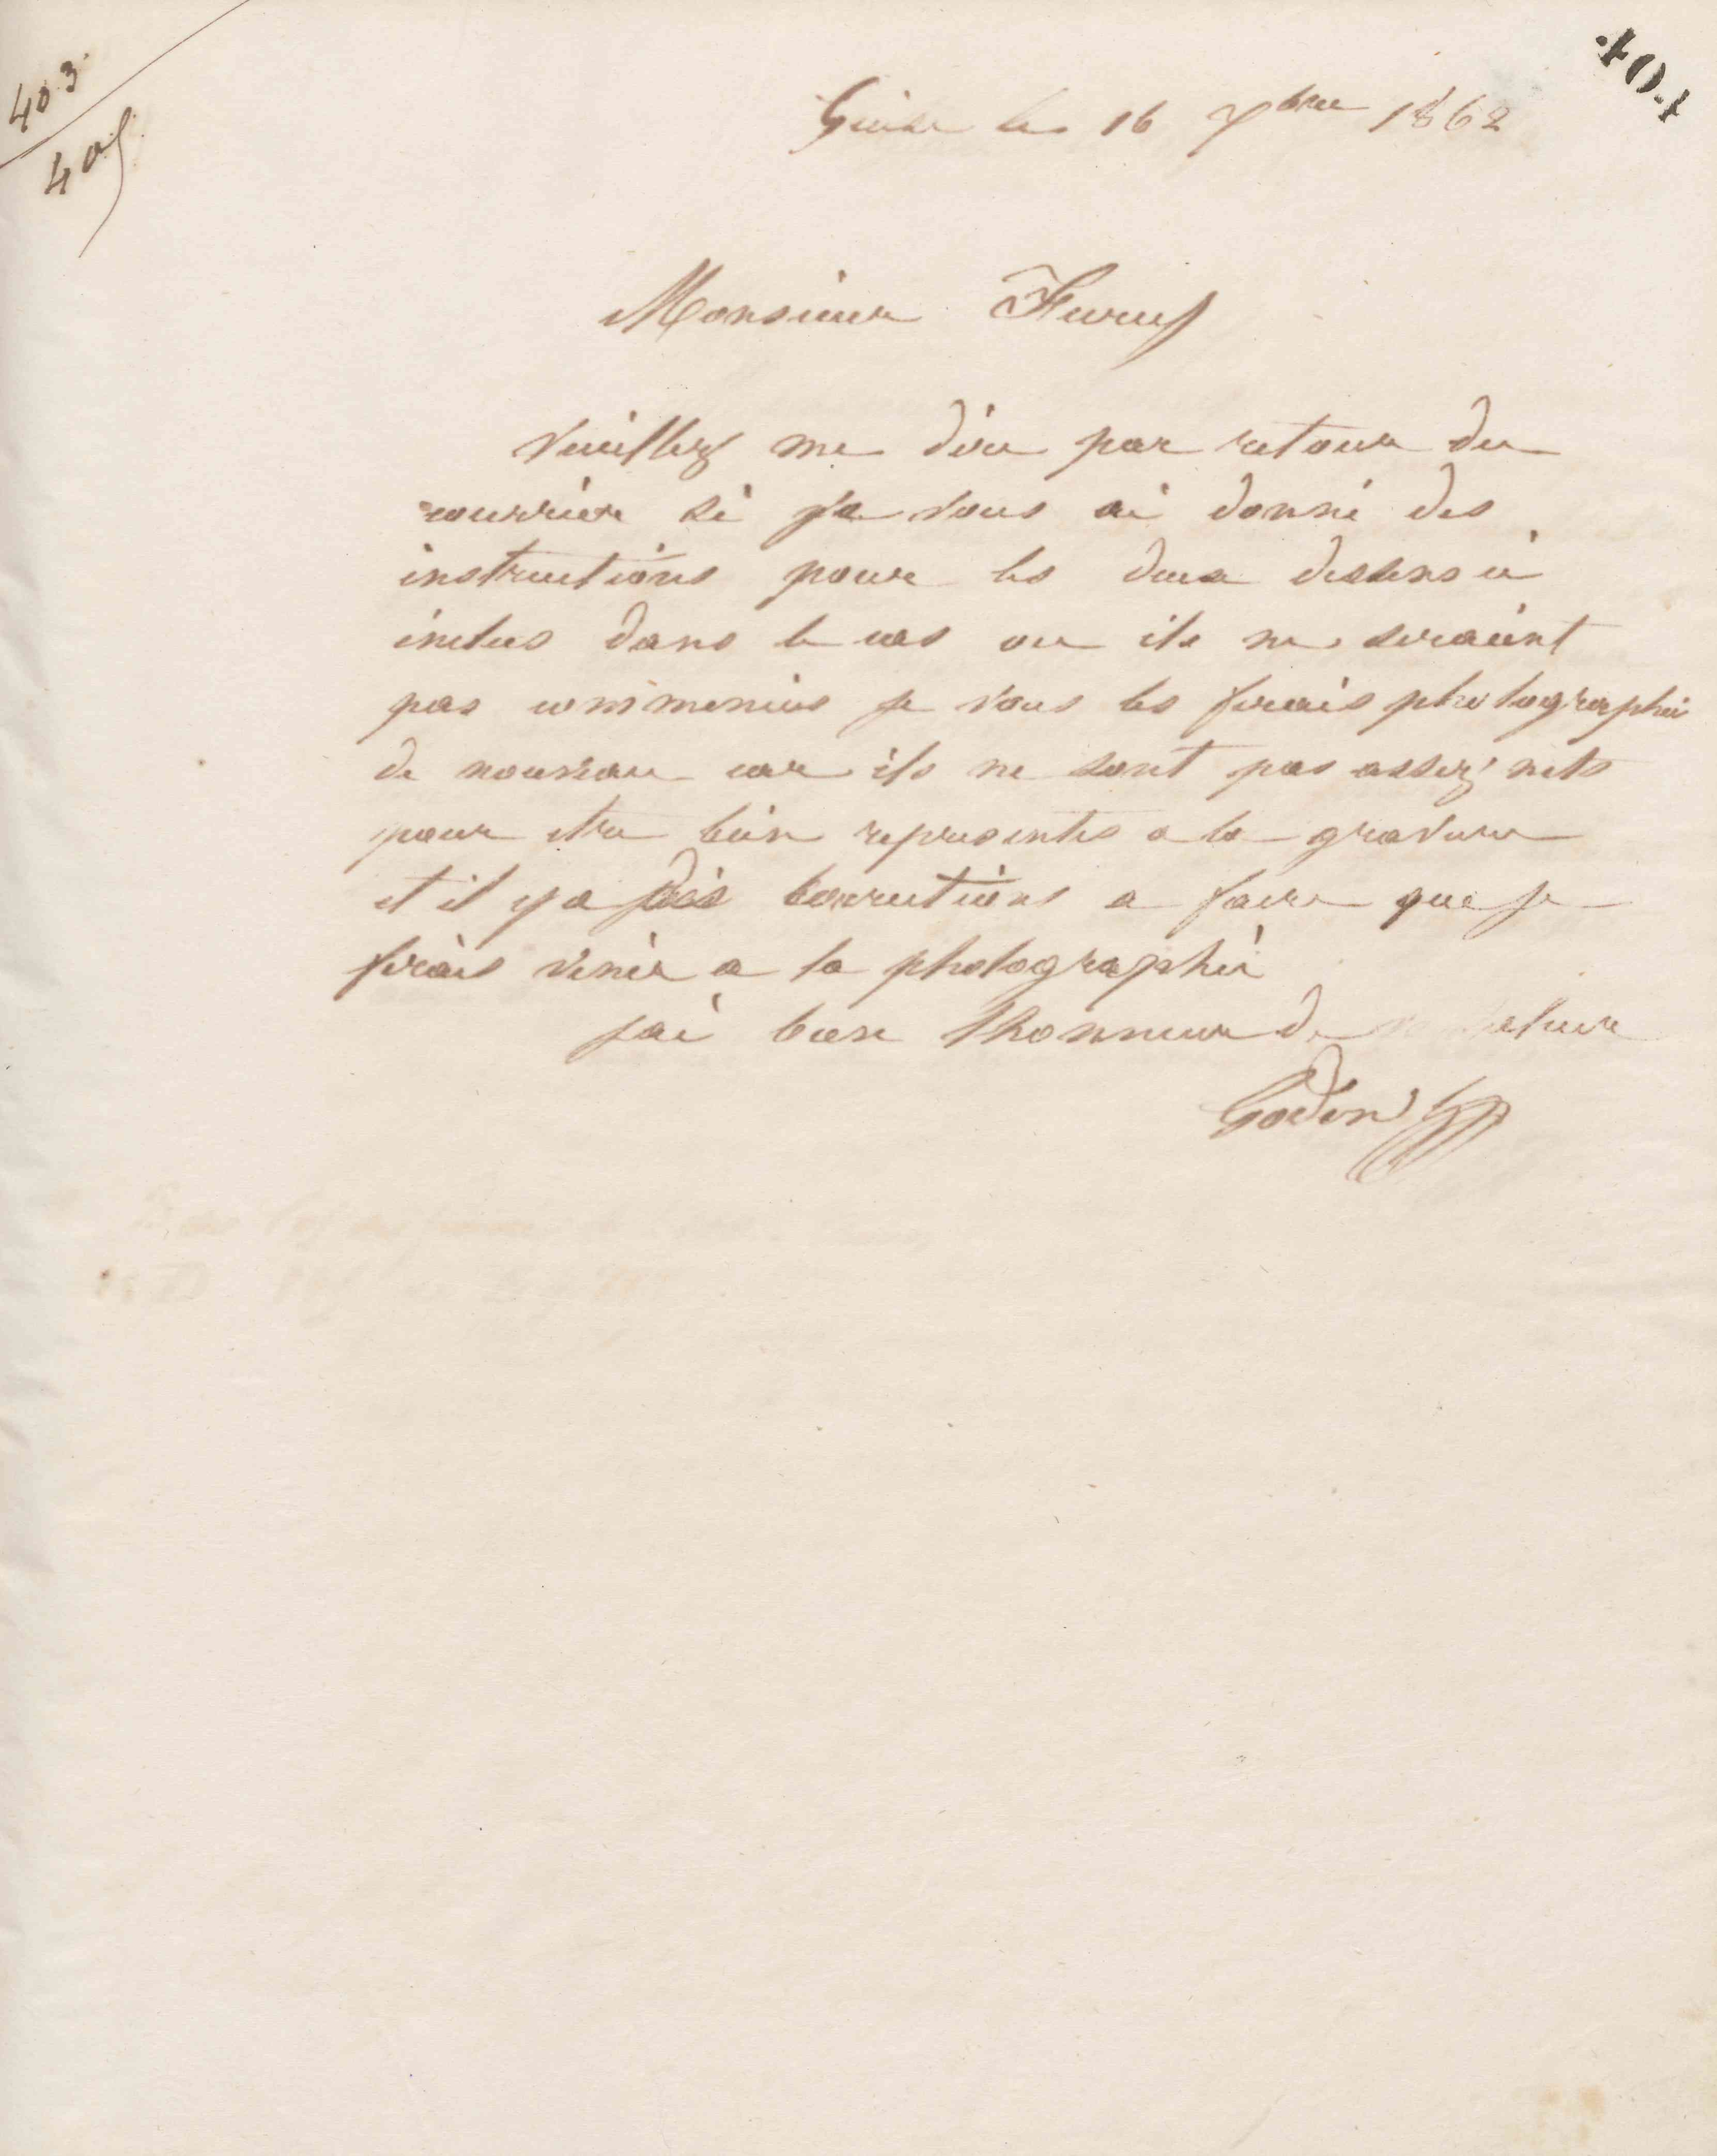 403
405
404
Guise le 16 7bre 1862
Monsieur
Veuillez me dire par retour du
courrier si je vous ai donné des
instructions pour les deux dessins ci
inclus dans le cas ou ils ne seraient
pas commencés je vous les ferais photographier
de nouveau car ils ne sont pas assez nets
pour etre bien representés a la gravure
et il y a des corrections a faire que je
ferais venir a la photographie
jai bien lhonneur de saluer
Godin